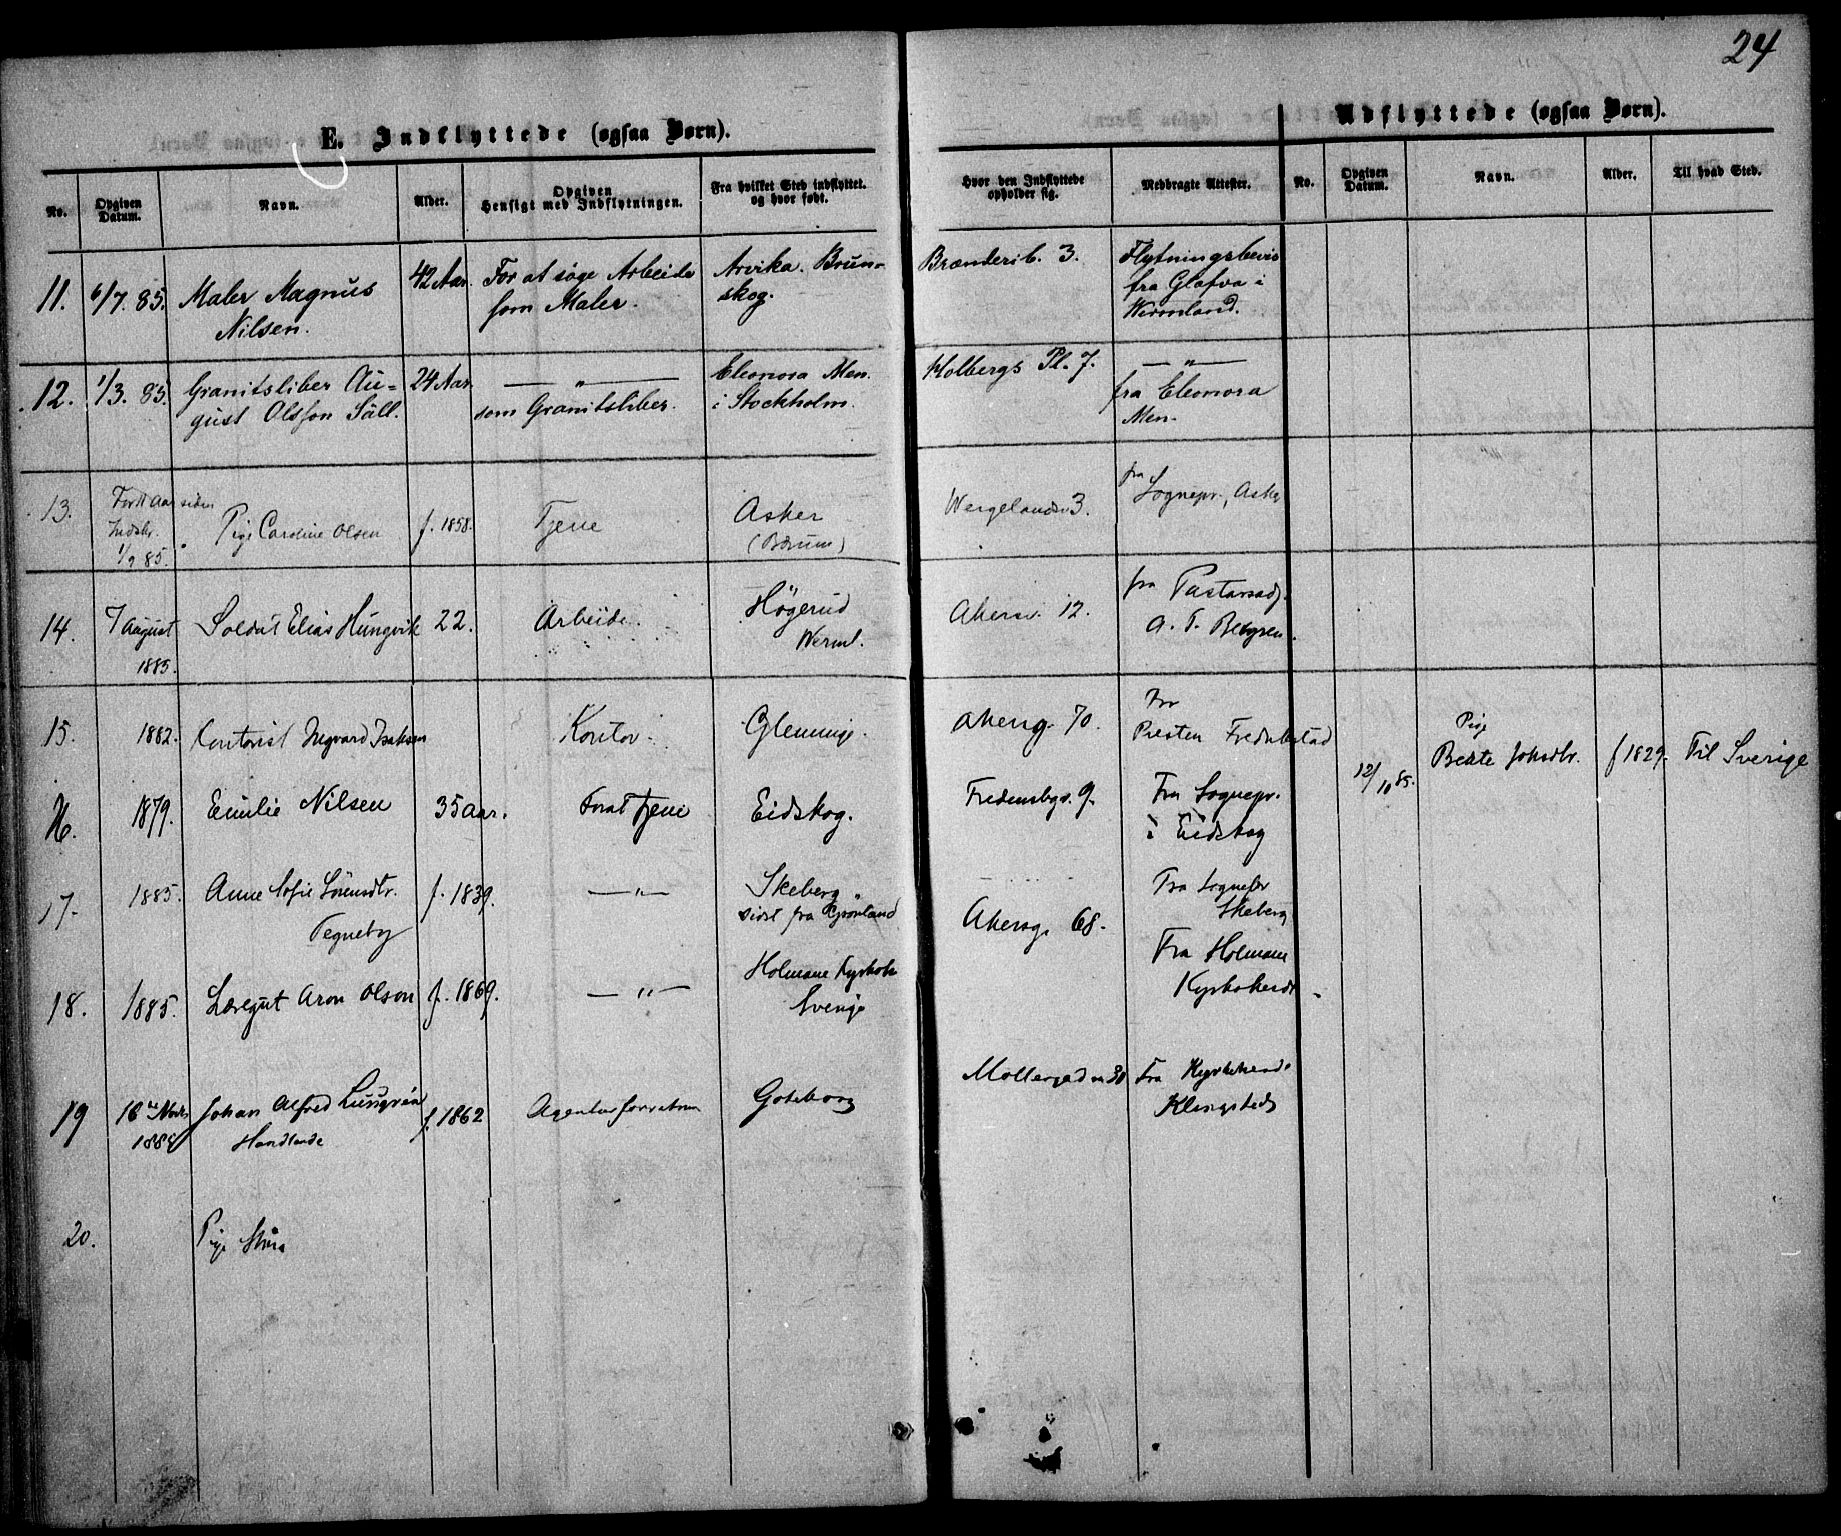 24
E. Indflyttede (ogsaa Børn).
Udflyttede (ogsaa Børn).
No.
Opgiven Datum.
Navn.
Alder.
Opgiven
Hensigt med Indflytningen.
Fra hvilket Sted indflyttet.
og hvor født.
Hvor den Indflyttede
opholder sig.
Medbragte Attester.
No.
Opgiven Datum.
Navn.
Alder.
Til hvad Sted.
11. 6/7. 85. Maler Magnus 42 Aar. For at søge Arbeide Arvika. Brun- Brænderib. 3. Flytningsbevis
Nilsen. som Maler. skog. fra Glafva i
Wermland.
12. 1/3. 85. Granitsliber Au- 24 Aar. — " — Eleonora Men. Holbergs Pl. 7. — " —
gust Olsson Säll. som Granitsliber. i Stockholm. fra Eleonora
Men.
13. For 11 Aar siden
Indskr.
1/9 85. Pige Caroline Olsen f. 1858. Tjene Asker Wergelandsv 3. fra
(Bærum) Sognepr., Asker
14. 7 August Soldat Elias Hungvik 22. Arbeide. Högerud Akersv. 12. fra Pastorsadj.
1885. Werml. A. T.
15. 1882. Kontorist Ingvard Isaksen Kontor. Glemminge. Akersg. 70. Fra
Presten Fredrikstad
12/10 85. Pige
Beate Johsdtr. f 1829. Til Sverige
16. 1879. Emilie Nilsen 35 aar. For at tjene Eidskog. Fredensbgv. 9. Fra Sognepr.
i Eidskog
17. 1885. Anne Sofie Sörensdtr. f. 1839. — " — Skeberg Akersg. 68. Fra Sognepr
Tegneby sidst fra Grönland Skeberg
18. 1885. Læregut Aron Olson f. 1869. — " — Holmane Sverige Fra Holmane
19 16de Novbr Johan Alfred f. 1862 Agenturforretnin Goteborg Mollergaden 30 Fra Kyrkoherde
Handlande Klingstedt
20. Pige